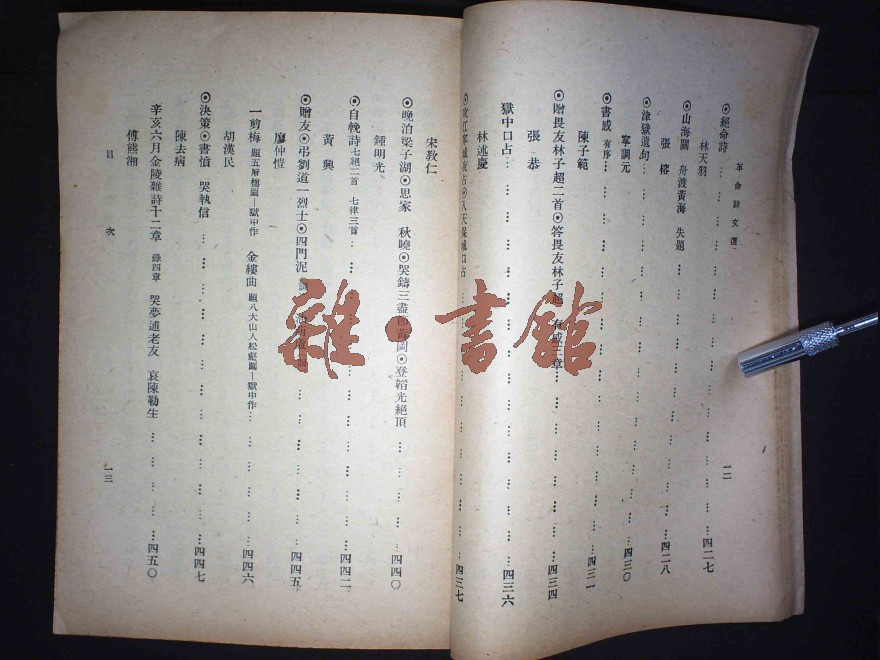 革命詩文選
一二
◎絕命詩……四二七
林天羽
◎山海關　舟渡黃海　失題……四二八
張榕
◎津獄遺句……四三〇
寧調元
◎書感 有序……四三一
陳子範
◎贈畏友林子超二首◎答畏友林子超　有感三章……四三四
張恭
獄中口占……四三六
林述慶
口占……四三七
宋教仁
◎晚泊梁子湖◎思家　秋曉◎哭鑄三盡節黃岡◎登韜光絕頂……四四〇
鍾明光
◎自輓詩 七絕二首　七律三首……四四二
黃興
◎贈友◎弔劉道一烈士◎四門泥……四四五
廖仲愷
一剪梅 題五層樓圖—獄中作　金縷曲 題八大山人松壑圖—獄中作……四四六
胡漢民
◎決策◎書憤　哭執信……四四七
陳去病
辛亥六月金陵雜詩十二章 錄四章　哭夢逋老友　哀陳勒生……四五〇
傅熊湘
目次
一三
雜·書館